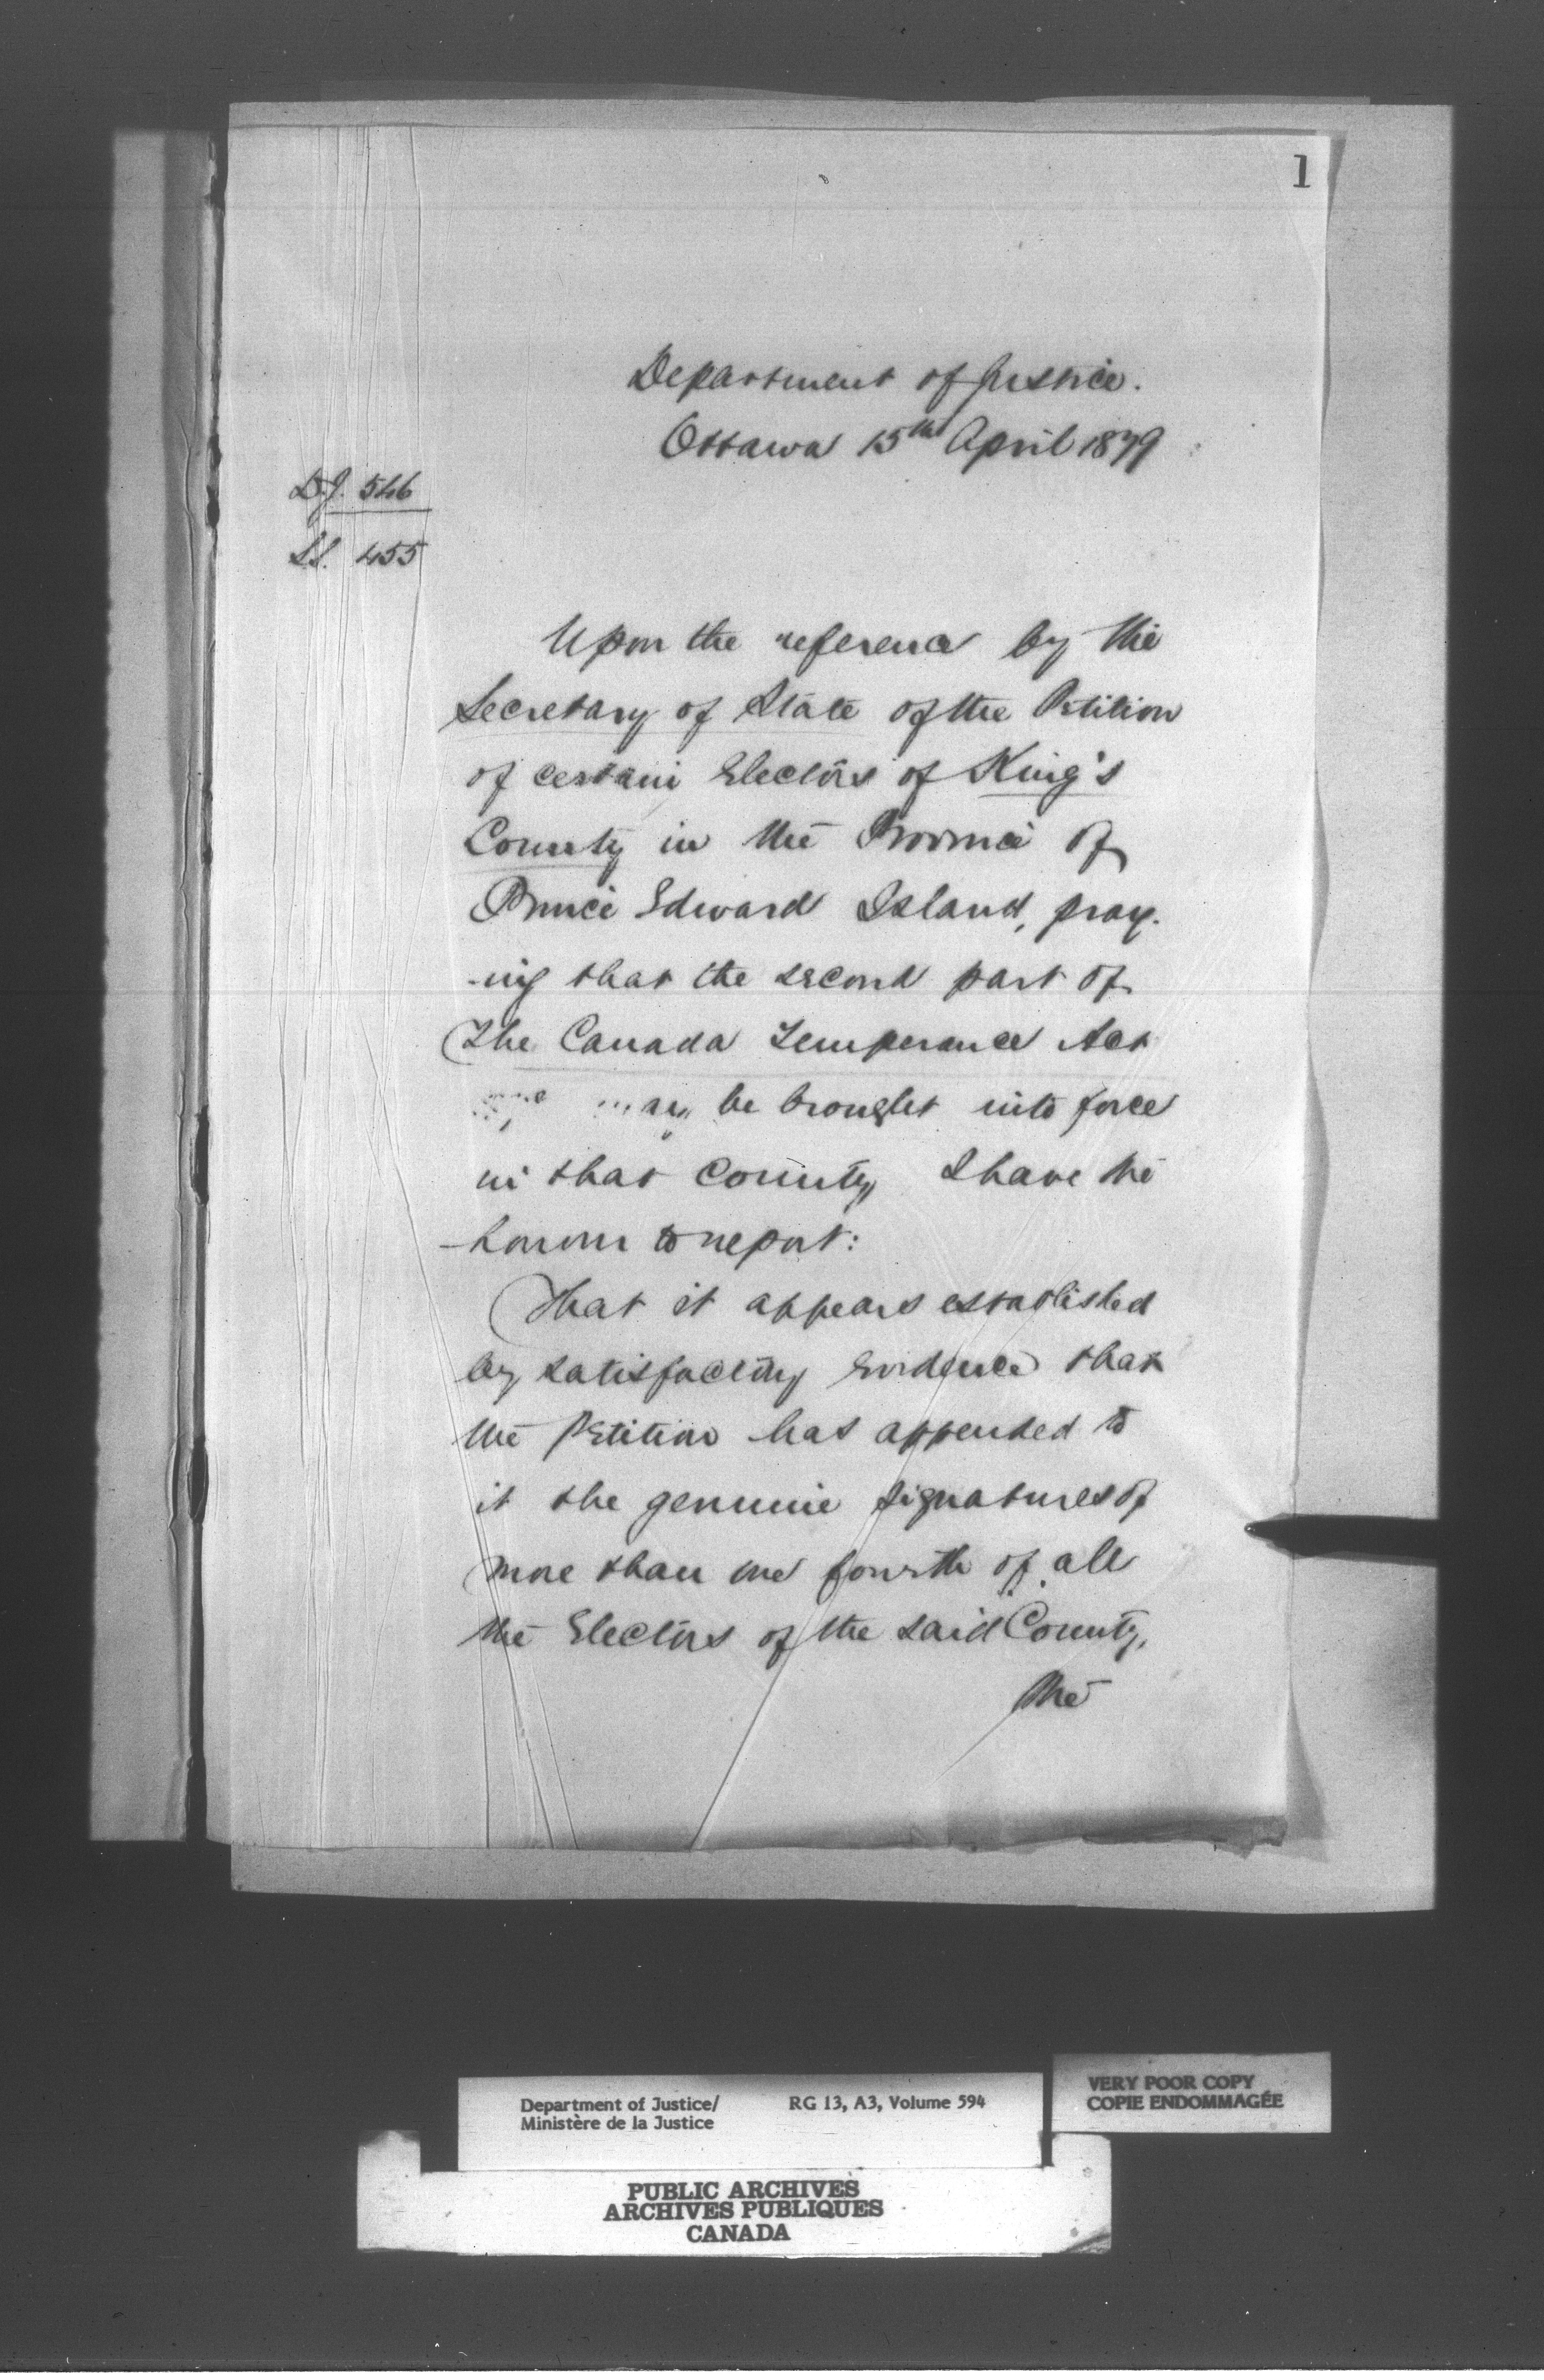 1
Department of Justice.
Ottawa 15th April 1879
D.J. 546
S.S. 455
Upon the reference by the
Secretary of State of the Petition
of certain Electors of King's
County in the Province of
Prince Edward Island, pray-
-ing that the second part of
The Canada Temperance Act
may be brought into force
in that County, I have the
honour to report:
That it appears established
by satisfactory evidence that
the Petition has appended to
it the genuine signatures of
more than one fourth of all
the Electors of the said County,
The
Department of Justice/
Ministère de la Justice
RG 13, A3, Volume 594
VERY POOR COPY
COPIE ENDOMMAGÉE
PUBLIC ARCHIVES
ARCHIVES PUBLIQUES
CANADA